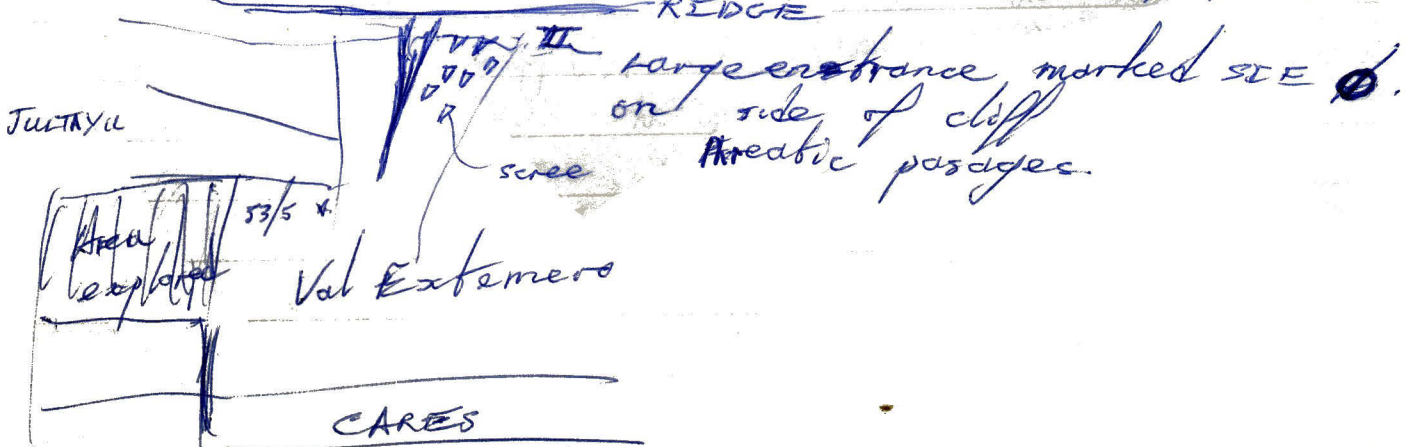 RIDGE
III
Large entrance marked SIE Ø.
on side of cliff
Phreatic pasages.
JULTAYU
scree
53/5
Area
explored
Val Extemero
CARES